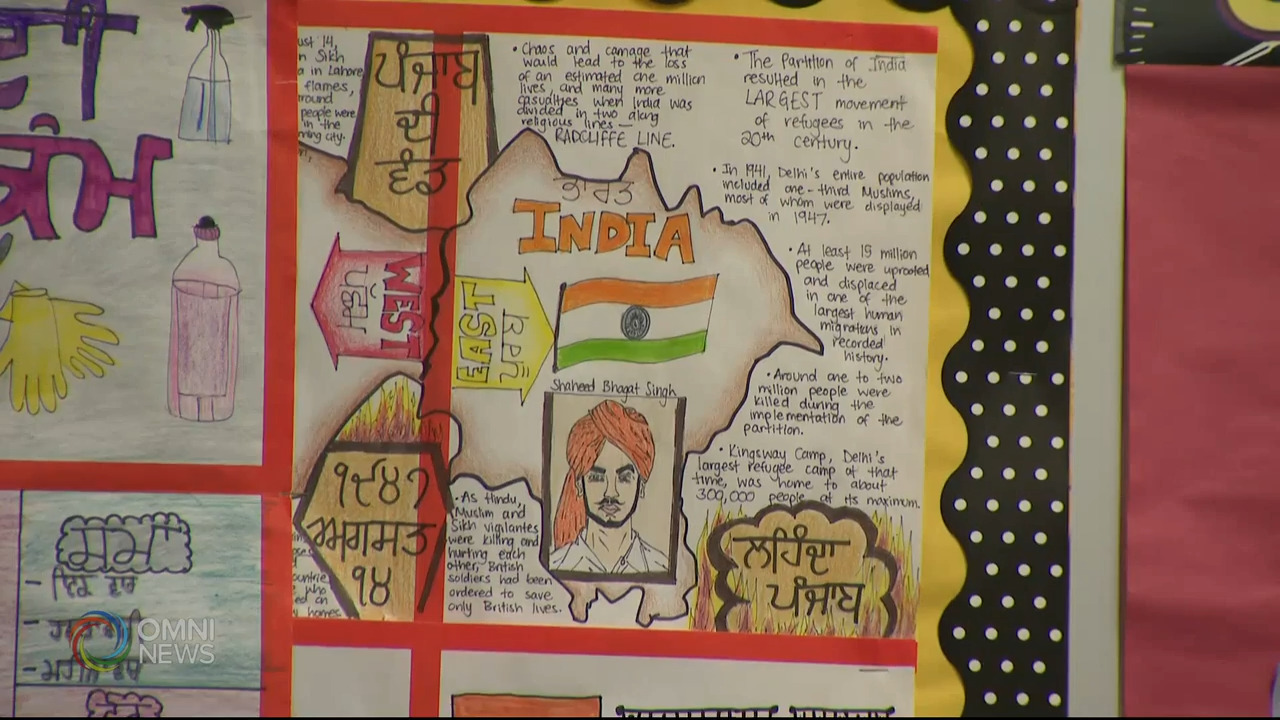 ust 14,
n Sikh
a in Lahore
flames,
round
people were
in the
ming city.
ਪੰਜਾਬ
ਦੀ
ਵੰਡ
• Chaos and carnage that
would lead to the loss
of an estimated one million
lives, and many more
casualties when India was
divided in two along
religious lines —
RADCLIFFE LINE.
• The Partition of India
resulted in the
LARGEST movement
of refugees in the
20th century.
• In 1941, Delhi's entire population
included one-third Muslims,
most of whom were displayed
in 1947.
• At least 15 million
people were uprooted
and displaced
in one of the
largest human
migrations in
recorded
history.
• Around one to two
million people were
killed during the
implementation of the
partition.
• Kingsway Camp, Delhi's
largest refugee camp at that
time, was home to about
300,000 people at its maximum.
ਭਾਰਤ
INDIA
WEST
ਪੱਛਮ
EAST
ਪੂਰਬ
Shaheed Bhagat Singh
੧੯੪੭
ਅਗਸਤ
੧੪
• As Hindu,
Muslim and
Sikh vigilantes
were killing and
hurting each
other, British
soldiers had been
ordered to save
only British lives.
ਲਹਿੰਦਾ
ਪੰਜਾਬ
ountrie
who
ed on
homes
ਦੀ
ਕੰਮ
OMNI
NEWS